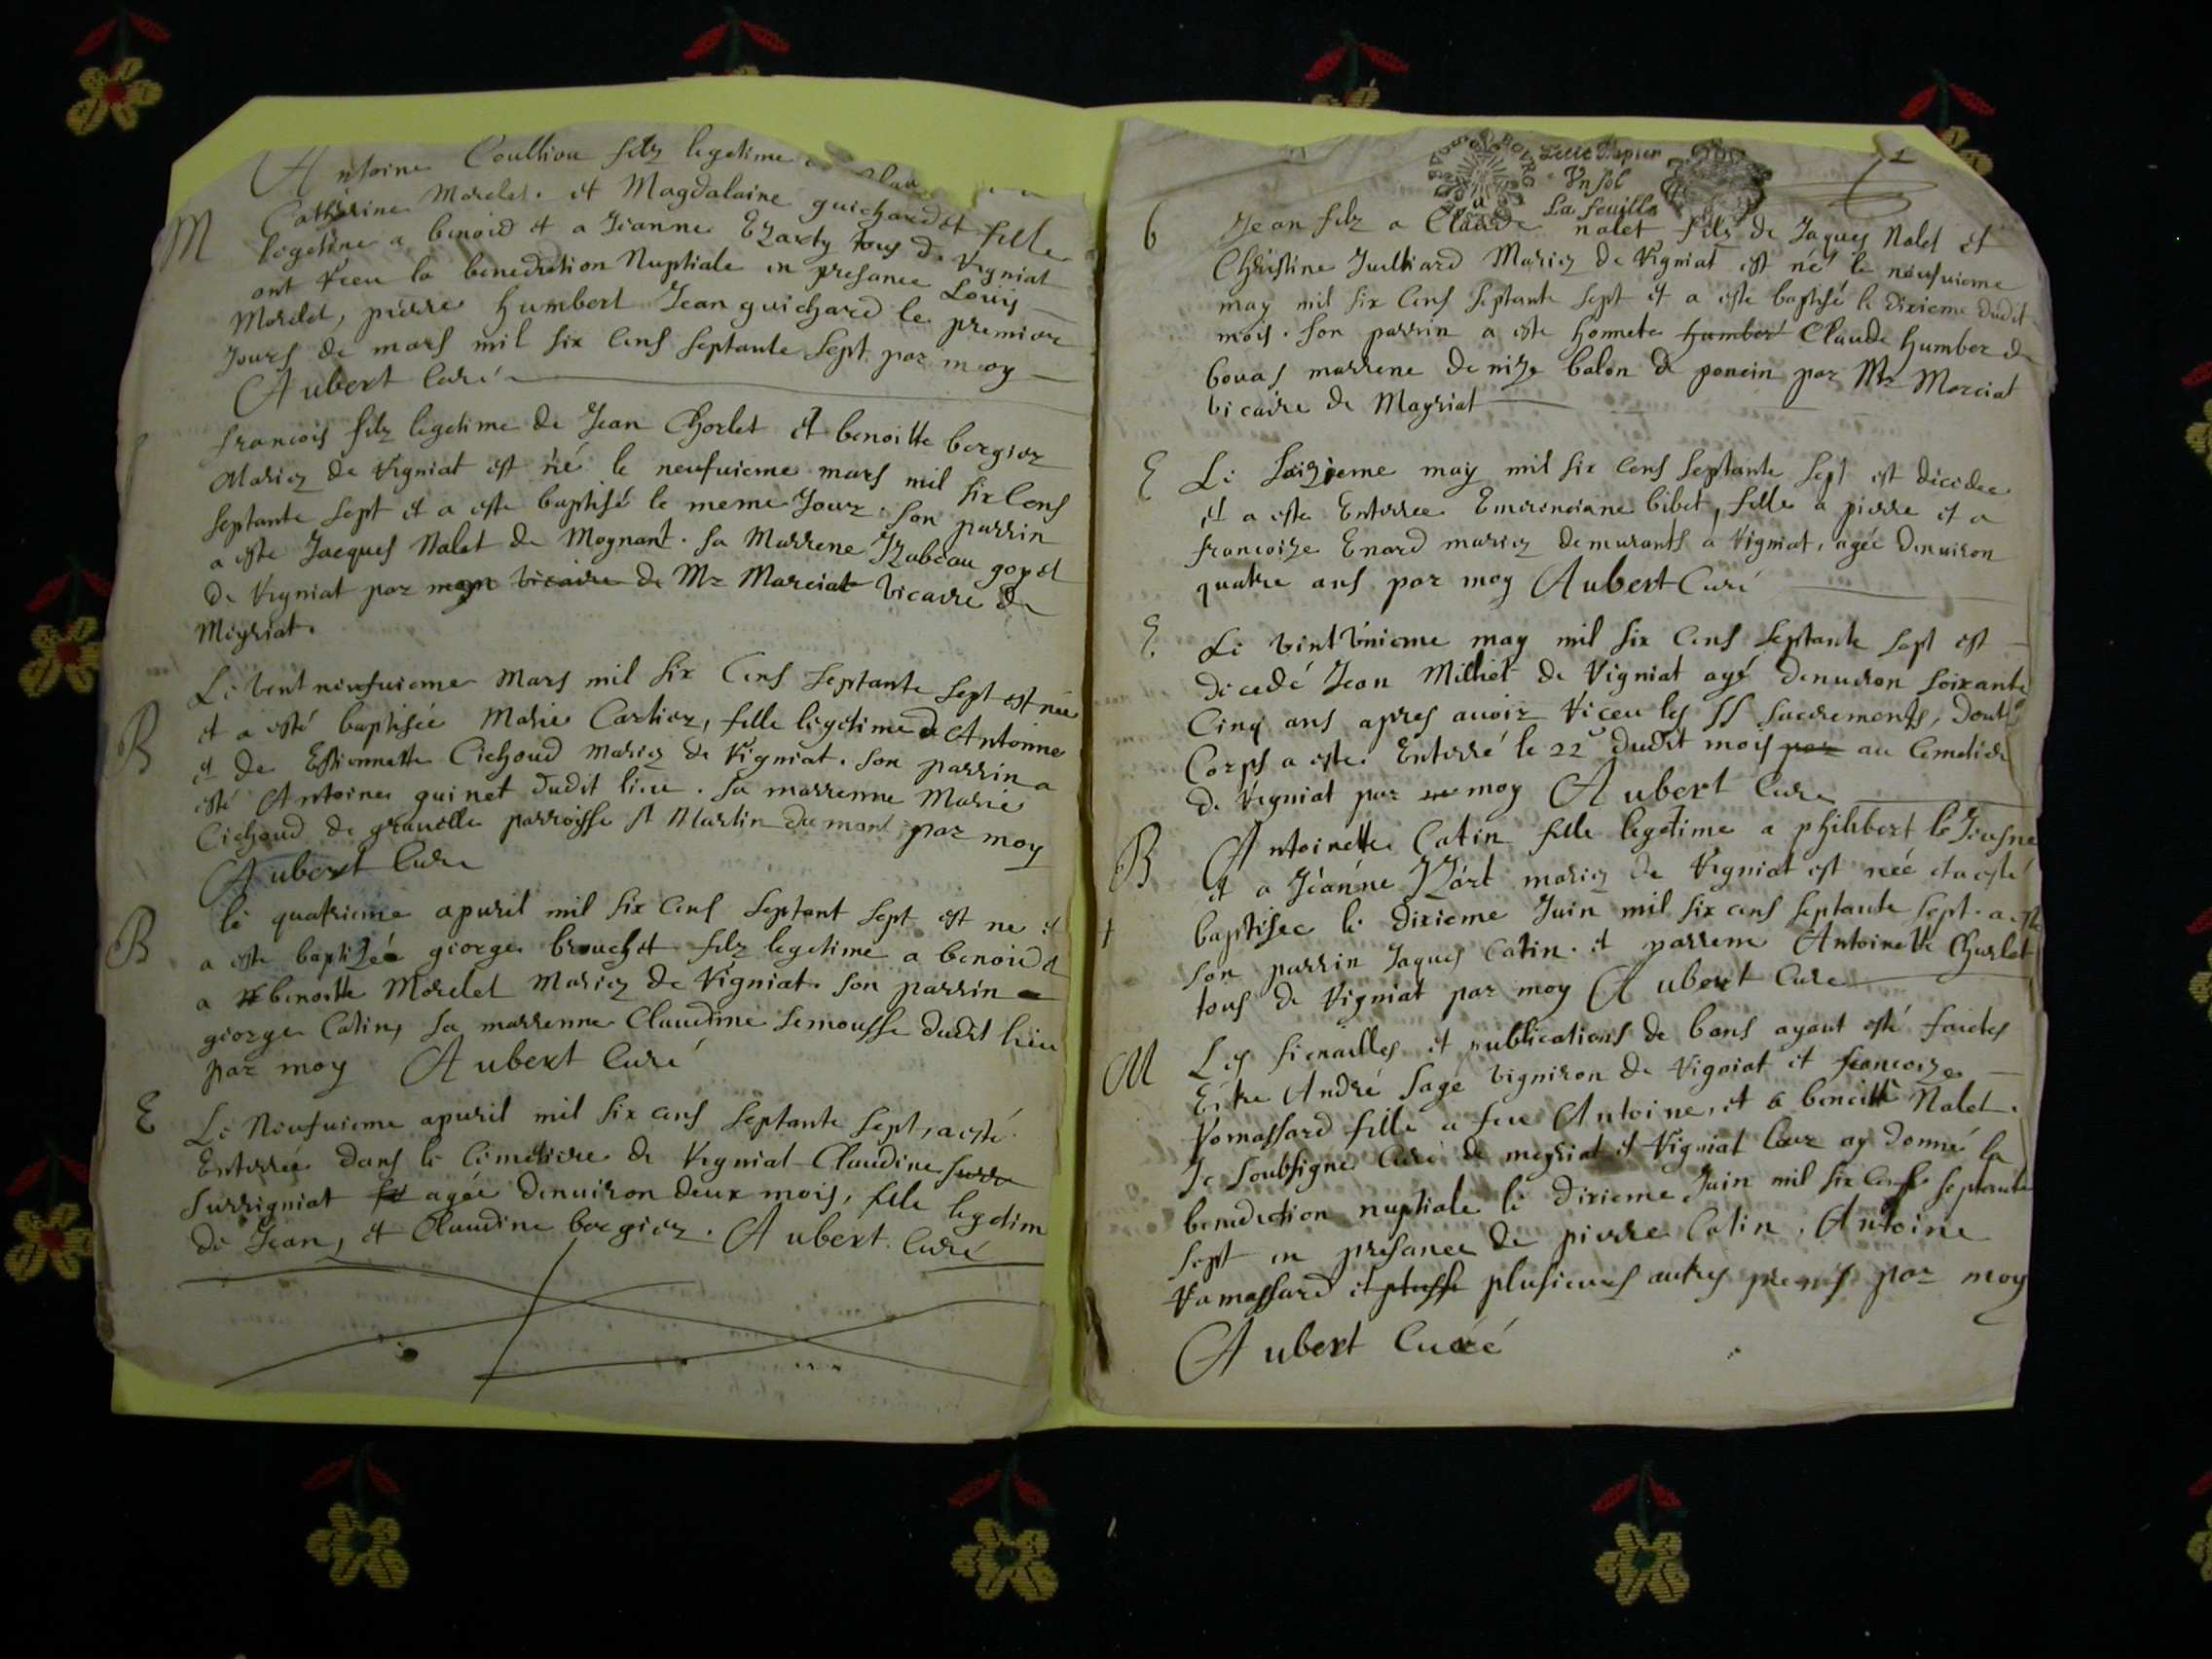 Antoine Coullion filz legetime
Catherine Morelet. et Magdalaine guichardet fille
M
legetime a benoid et a Jeanne Ezarty tous de Vigniat
ont receu la benediction Nuptiale en presance Louis
Morelet, pierre humbert Jean guichard le premier
Jours de mars mil six cens septante sept par moy
Aubert Curé
francois filz legetime de Jean Chorlet et benoitte bergier
Mariez de Vigniat est né le neufuieme mars mil six Cens
septante sept et a este baptisé le meme Jour. son parrin
a este Jacques Nalet de Mognant. sa Marrene Izabeau goyet
de Vigniat par vicaire de Mr Marciat vicaire de
Meyriat.
Le vent neufuieme Mars mil six Cens septante sept est née
B
et a esté baptisée Marie Cartier, fille legetime d Antoinne
et de Estiennette Cichoud mariez de Vigniat. son parrin a
esté Antoine guinet dudit lieu. sa marrenne Marie
Cichoud de grauelle parroisse st Martin du mont par moy
Aubert Cure
B
le quatrieme apuril mil six cens septant sept est ne et
a este baptizée george brouchet filz legetime a benoid et
a benoitte Morelet Mariez de Vigniat. son parrin
george Catin, sa marrenne Claudine Lemousse dudit lieu
par moy Aubert Curé
E
Le Neufuieme apuril mil six cens septante sept, a esté
Enterrée dans le cimetiere de Vigniat Claudine surr
surrigniat agée denuiron deux mois, fille legetim
de Jean, et Claudine bergier. Aubert Curé
BOURG
Petit Papier
Un sol
La feuille
2
b
Jean filz a Claude nalet filz de Jaques Nalet et
Christine Juilliard Mariez de Vigniat est né le neufuieme
may mil six cens septante sept et a este baptisé le dixieme dudit
mois. son parrin a este honnete humbert Claude humber de
bouas marrene denize balon de poncin par Mr Marciat
vicaire de Mayriat
E
Le saizieme may mil six cens septante sept est decedee
et a este Enterree Emerenciane bibet, fille a pierre et a
francoize Enard mariez demurants a Vigniat, agée denuiron
quatre ans par moy Aubert Curé
E
Le vint vnieme may mil six cens septante sept est
decedé Jean Milliet de Vigniat agé denuiron soixante
Cinq ans apres auoir receu les SS sacrements, dont
Corps a este Enterré le 22e dudit mois par au Cemetiere
de Vigniat par moy Aubert Cure
B
Antoinette Catin fille legetime a philibert le Jeusne
et a Jeanne Izart mariez de Vigniat est neé et a esté
baptisee le dixieme Juin mil six cens septante sept. a este
son parrin Jaques Catin. et parrene Antoinette Charlet
tous de Vigniat par moy Aubert Cure
M
Les fiensailles et publications de bans ayant esté faictes
Entre André sage vigniron de Vigniat et francoize
Vomassard fille a feu Antoine, et a benoitte Nalet.
Je soubsigne Curé de meyriat et Vigniat leur ay donné la
benediction nuptiale le dixieme Juin mil six cens septante
sept en presance de pierre Catin, Antoine
Vamassard et plusieurs autres par moy
Aubert Curé